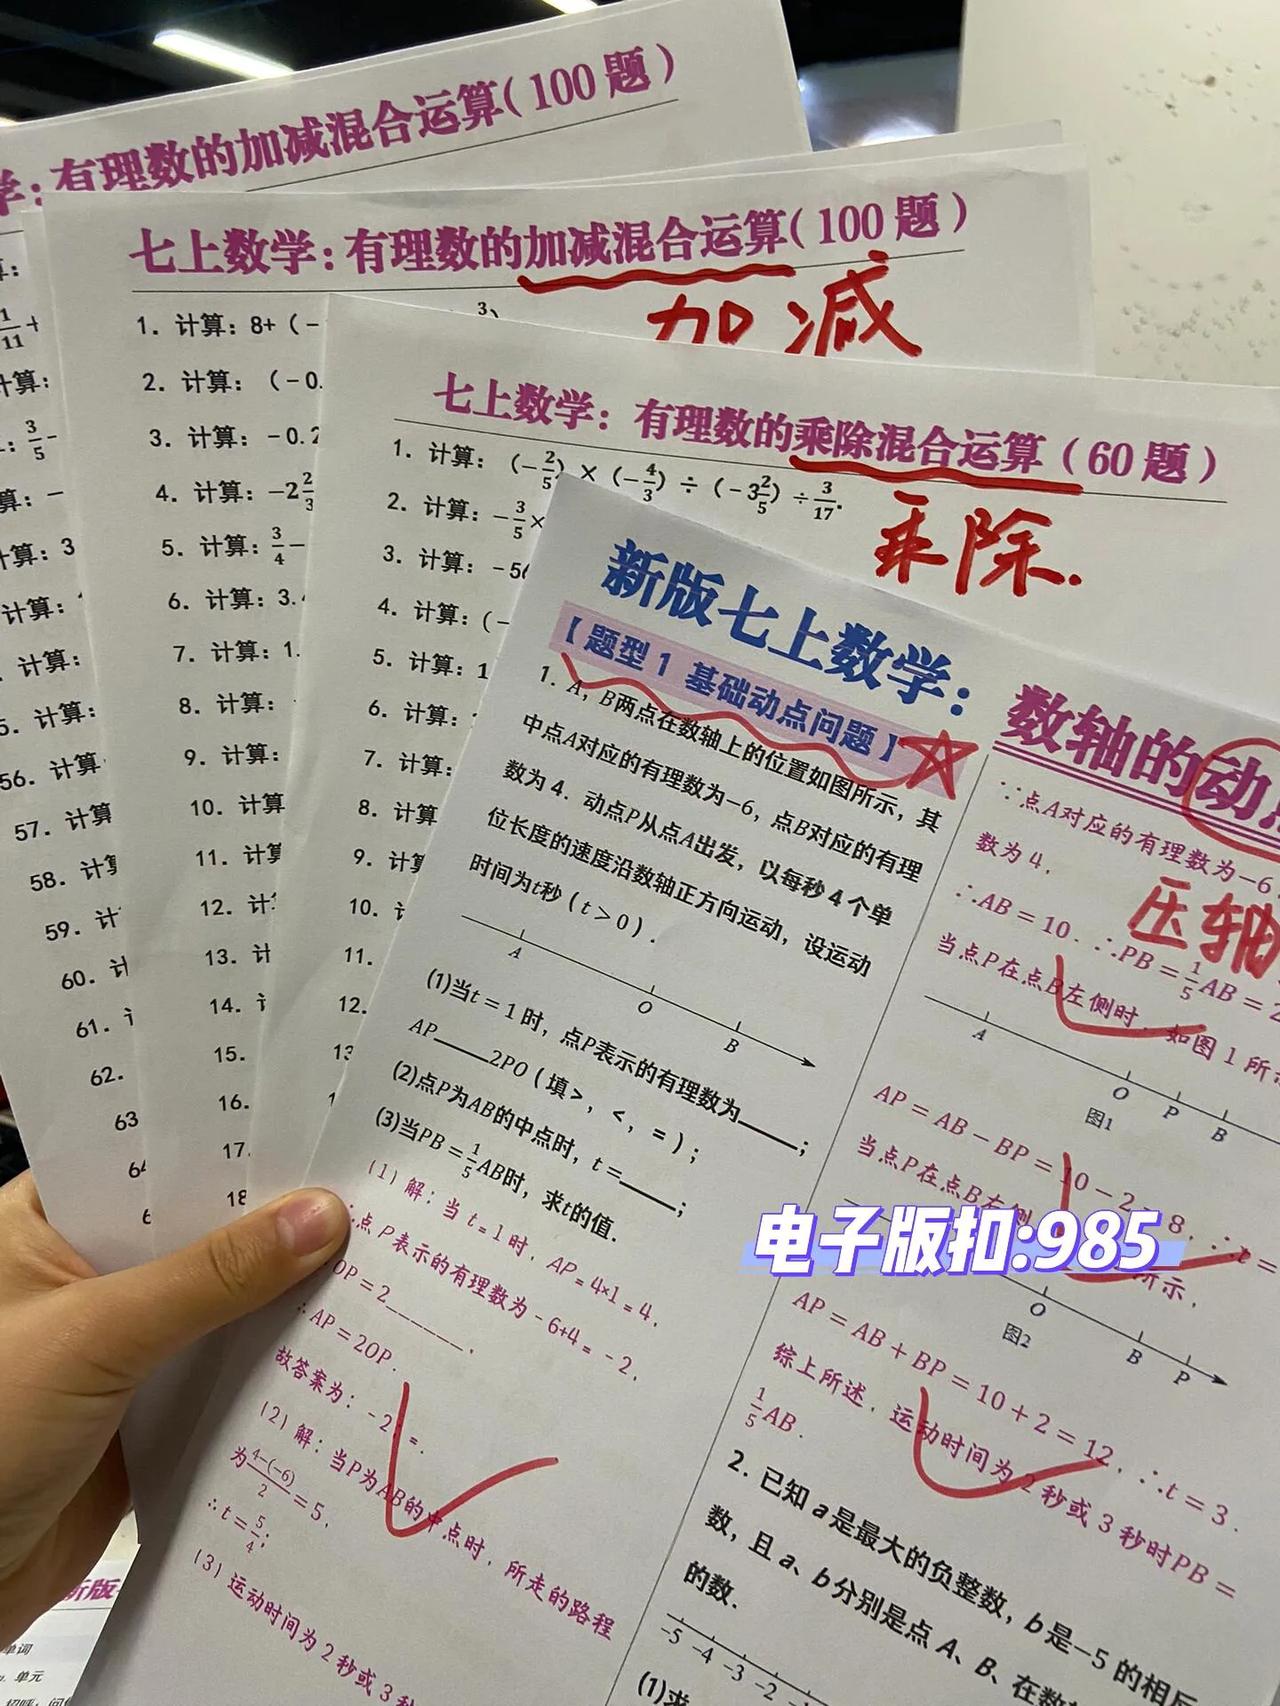 学：有理数的加减混合运算（100 题）
七上数学：有理数的加减混合运算（100 题）
加减
1. 计算：8+（-
2. 计算：（-0.
3. 计算：-0.2
4. 计算：-2 2/3
5. 计算：3/4-
6. 计算：3.
7. 计算：1.
8. 计算：
9. 计算：
10. 计算
11. 计算
12. 计
13. 计
14.
15.
16.
17.
18
56. 计算
57. 计算
58. 计算
59. 计
60. 计
61.
62.
63
七上数学：有理数的乘除混合运算（60 题）
乘除.
1. 计算：（-2/5）×（-4/3）÷（-3 2/5）÷3/17.
2. 计算：-3/5×
3. 计算：-56
4. 计算：（-
5. 计算：1
6. 计算：
7. 计算：
8. 计算
9. 计算
10. 计
11.
12.
13
新版七上数学：数轴的动
【题型 1 基础动点问题】
1. A，B两点在数轴上的位置如图所示，其
中点A对应的有理数为-6，点B对应的有理
数为 4．动点P从点A出发，以每秒 4 个单
位长度的速度沿数轴正方向运动，设运动
时间为t秒（t＞0）．
A O B
(1)当t＝1 时，点P表示的有理数为____；
AP____2PO（填＞，＜，＝）；
(2)点P为AB的中点时，t＝____；
(3)当PB＝1/5AB时，求t的值．
（1）解：当 t＝1 时，AP＝4×1＝4．
∴点 P 表示的有理数为 -6+4＝-2．
OP＝2
∴AP＝2OP．
故答案为：-2；=．
（2）解：当P为AB的中点时，所走的路程
为4-(-6)/2＝5．
∴t＝5/4；
（3）运动时间为 2 秒或 3 秒
∵点A对应的有理数为-6
数为 4．
压轴
∴AB＝10．∴PB＝1/5AB＝2
当点P在点B左侧时，如图 1 所
A O P B
图1
AP＝AB－BP＝10－2＝8．∴t＝
当点P在点B左侧
所示．
电子版扣:985
O B P
图2
AP＝AB＋BP＝10＋2＝12．∴t＝3．
综上所述，运动时间为 2 秒或 3 秒时PB＝
1/5AB．
2. 已知 a 是最大的负整数，b 是-5 的相反
数，且 a、b 分别是点 A、B、在数
的数．
-5 -4 -3 -2 -1
(1)求
新版
单词
单元